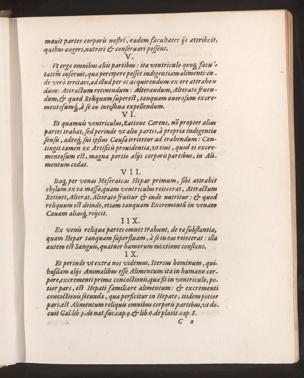 mauit partes corporis nostri, eadem facultates ijs attribuit,
quibus augeri, nutriri & conseruari possent.
V.
Vt ergo omnibus aliis partibus: ita ventriculo quoq, facu-
tatem inseruit, qua percepere posset indigentiam alimenti: in-
de verò irritari, ad illud per os acquirendum: ex ore attrahen-
dum: Attractum retinendum: Alterandum, Alterato fruen-
dum, & quod Reliquum superest, tanquam onerosum excre-
mentosumq, à se in intestina expellendum.
VI.
Et quamuis ventriculus, Ratione Carens, nō propter alias
partes trahat, sed perinde vt aliæ partes, à propria indigentia
sensu, adeoq, sui ipsius Causa irritetur ad trahendum: Con-
tingit tamen ex Artificis prouidentia, vt eius, quod ei excre-
mentosum est, magna portio aliis corporis partibus, in Ali-
mentum cedat.
VII.
Itaq, per venas Meseraicas Hepar primum, sibi attrahit
chylum ex ea massa, quam ventriculus reiecerat, Attractum
Retinet, Alterat, Alterato fruitur & inde nutritur: & quod
reliquum est deinde, etiam tanquam Excrementū in venam
Cauam aliasq, reijcit.
IIX.
Ex venis reliquæ partes omnes trahunt, de ea substantia,
quam Hepar tanquam superfluam, à se in eas reiecerat: illa
autem est Sanguis, quatuor humorum mixtione constans.
IX.
Et perinde vt extra nos videmus, Stercus hominum, qui-
busdam aliis Animalibus esse Alimentum: ita in humano cor-
pore, excrementi prima concoctionis, quæ fit in ventriculo, po-
tior pars, est Hepati familiare alimentum: & excrementi
concoctionis secunda, qua perficitur in Hepate, itidem potior
pars, est Alimentum reliquis omnibus corporis partibus, vt do-
cuit Gal. lib 3. de nat. fac. cap. 9. & lib. 6. de placit. cap. 8.
C 2